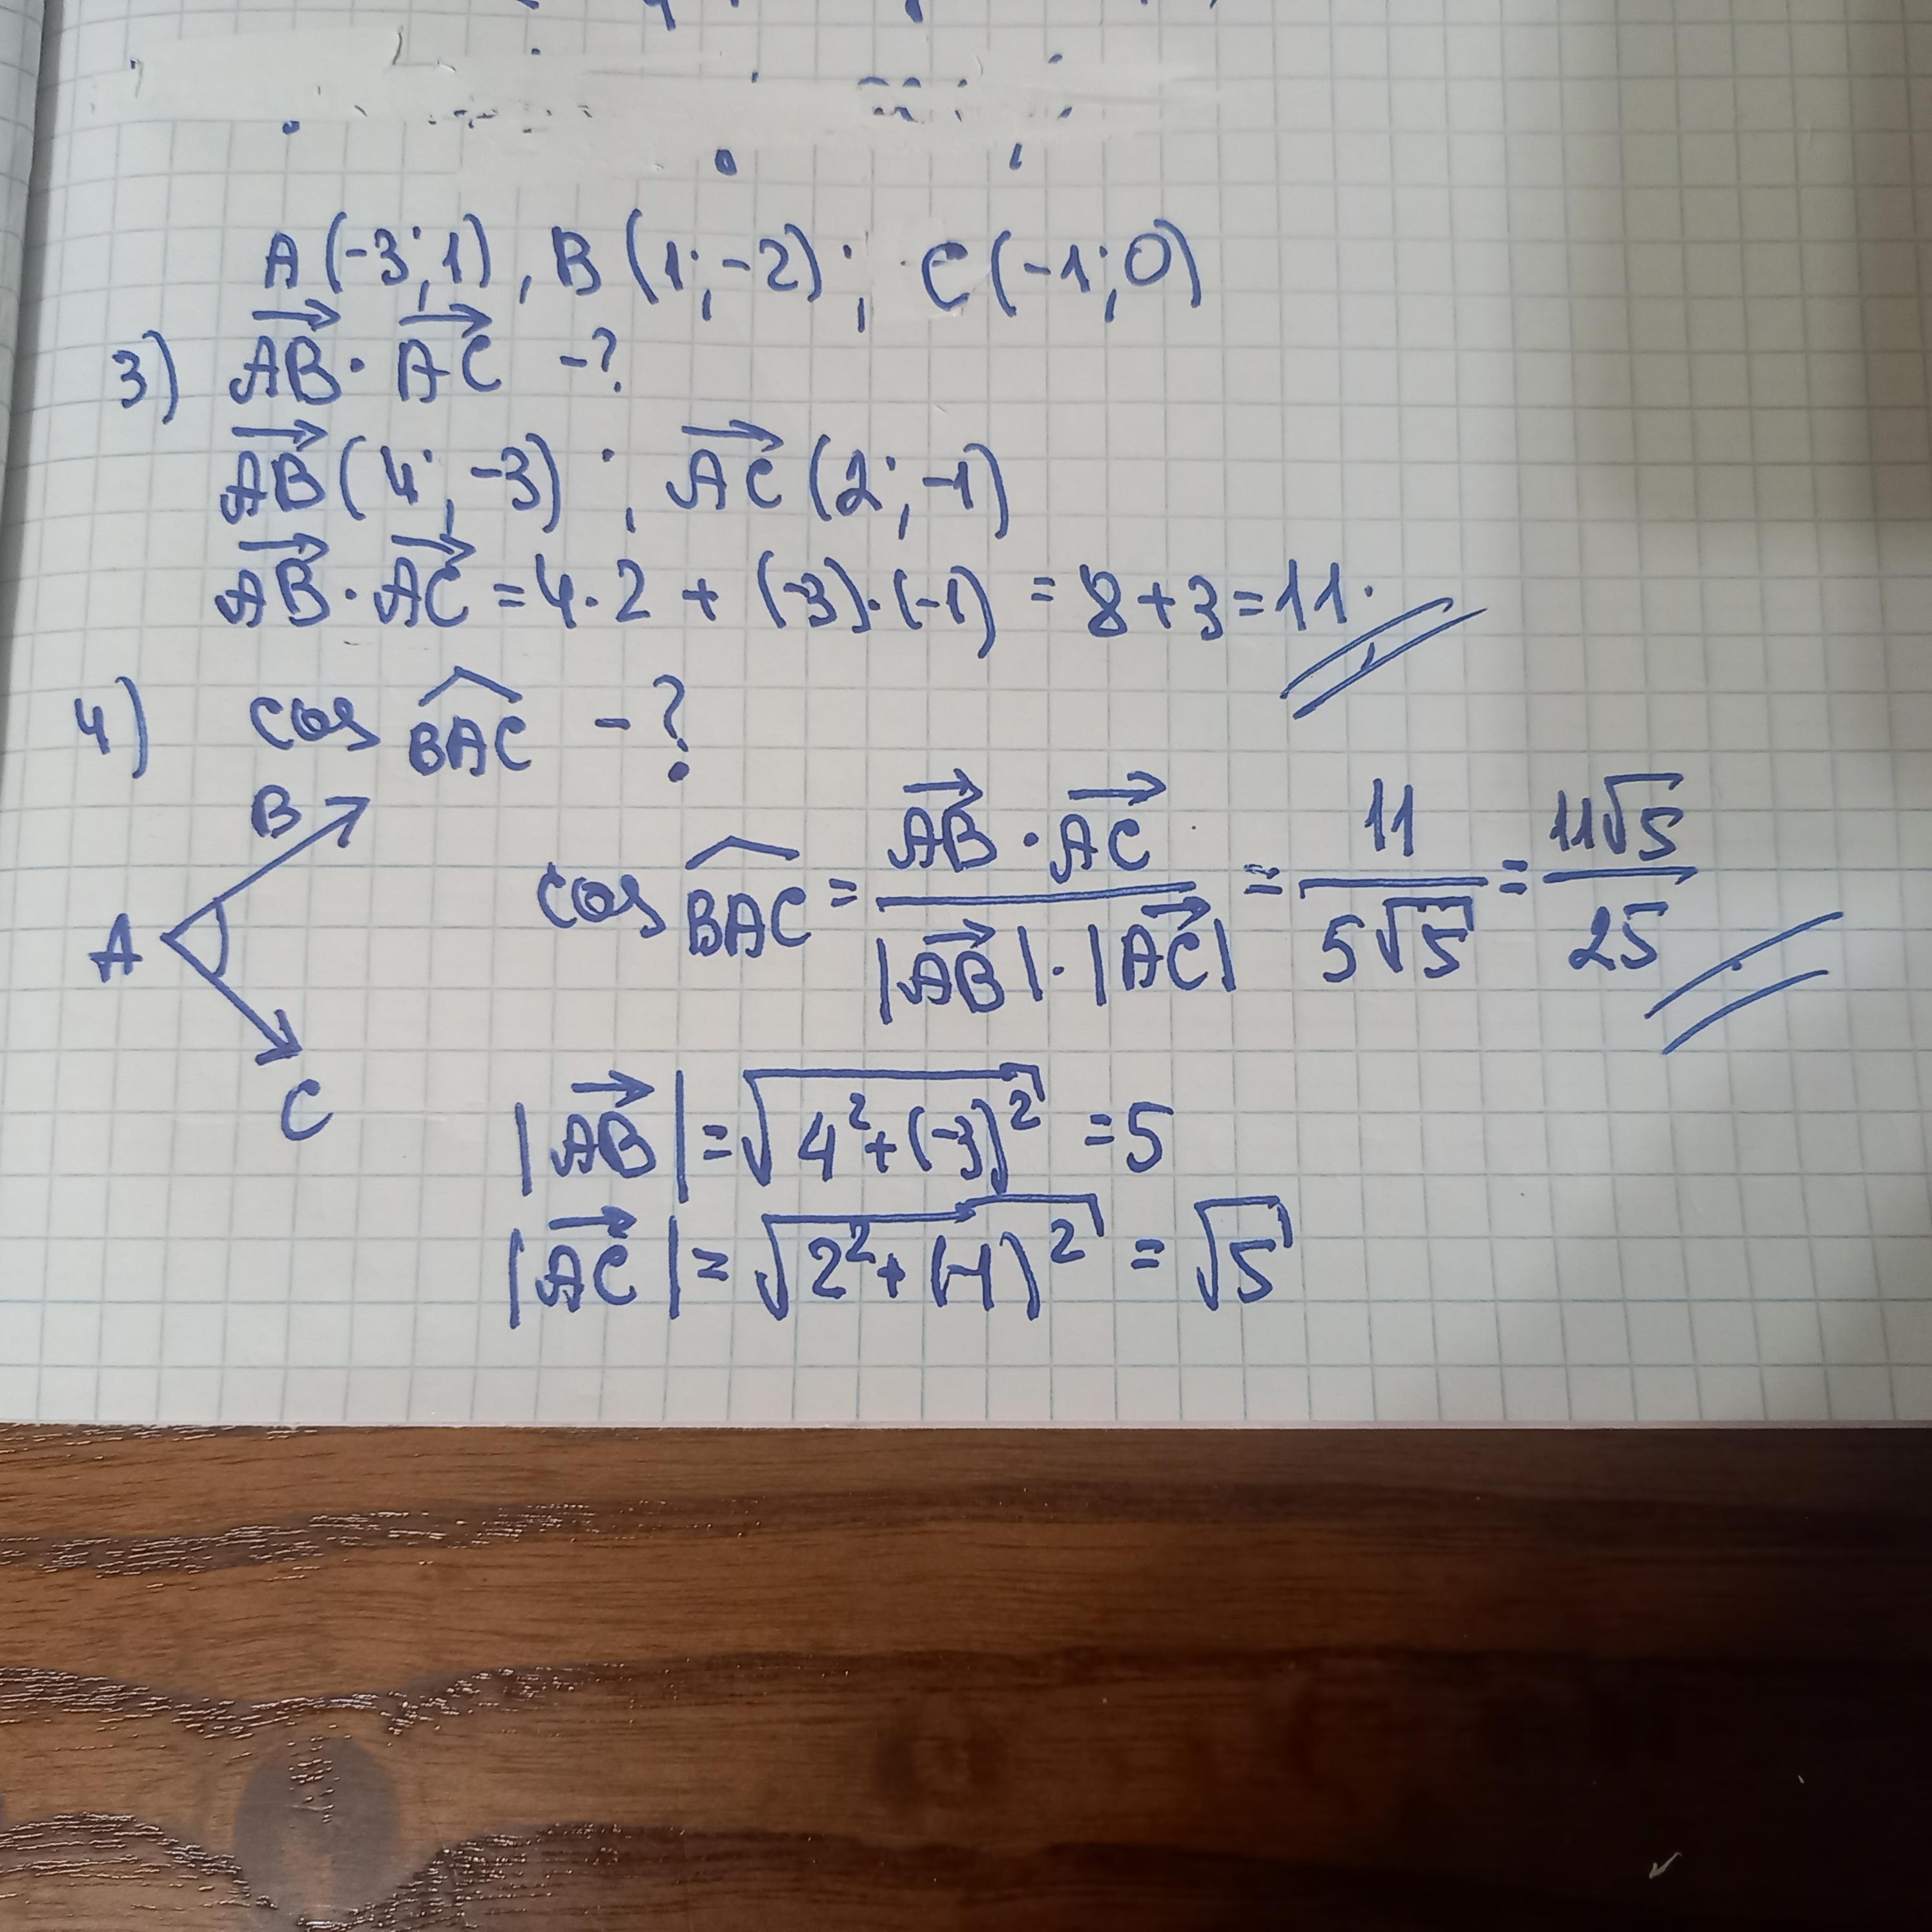 A(-3;1), B(1;-2); C(-1;0)
3) $\overrightarrow{AB} \cdot \overrightarrow{AC}$ -?
$\overrightarrow{AB}$(4;-3); $\overrightarrow{AC}$(2;-1)
$\overrightarrow{AB} \cdot \overrightarrow{AC}$ = 4·2 + (-3)·(-1) = 8+3=11.
4) cos $\widehat{BAC}$ -?
B
A
C
cos $\widehat{BAC} = \frac{\overrightarrow{AB} \cdot \overrightarrow{AC}}{|\overrightarrow{AB}| \cdot |\overrightarrow{AC}|} = \frac{11}{5\sqrt{5}} = \frac{11\sqrt{5}}{25}$
$|\overrightarrow{AB}| = \sqrt{4^2+(-3)^2} = 5$
$|\overrightarrow{AC}| = \sqrt{2^2+(-1)^2} = \sqrt{5}$